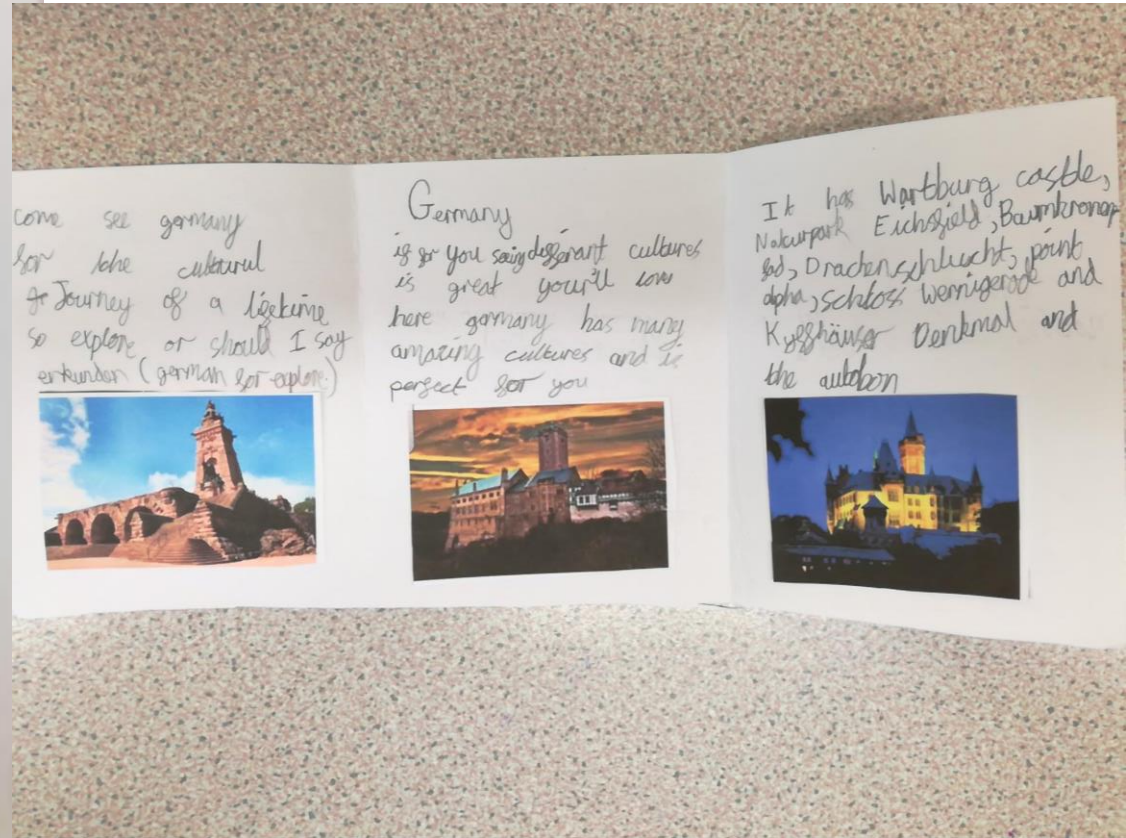 come see germany
for the cultural
Journey of a lifetime
so explore or should I say
erkunden (german for explore)
Germany
is for you seing differant cultures
is great your'll love
here germany has many
amazing cultures and is
perfect for you
It has Wartburg castle,
Naturpark Eichsfield, Baumkronenp
fad, Drachenschlucht, point
alpha, schloss Wernigerode and
Kyffhäuser Denkmal and
the autobon